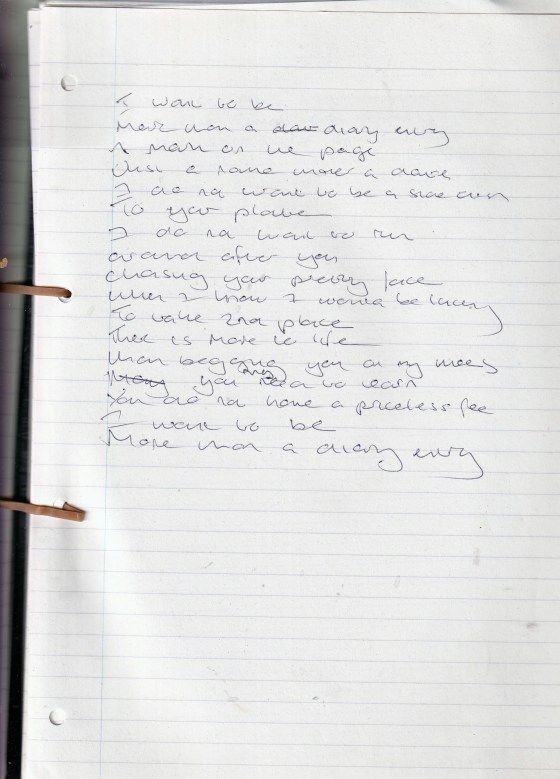 I want to be
More than a diary entry
A mark on the page
Just a name under a date
I do not want to be a side dish
To your plate
I do not want to run
around after you
chasing your pretty face
when I know I would be lucky
To take 2nd place
There is more to life
than begging you on my knees
you may need to learn
You do not have a priceless fee
I want to be
More than a diary entry